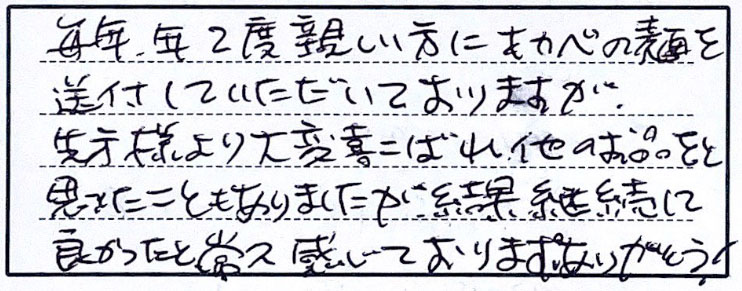 毎年、年2度親しい方にまかべの麺を
送付していただいておりますが、
先方様より大変喜こばれ、他のお品をと
思ったこともありましたが、結果継続して
良かったと常々感じております。ありがとう!